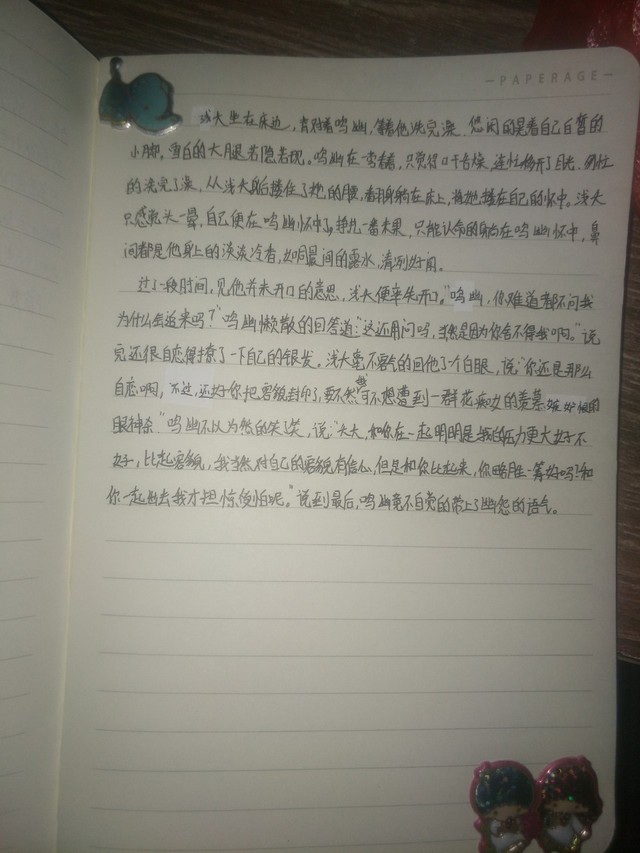 PAPERAGE
浅大坐在床边,背对着鸣幽,等着他洗完澡,悠闲的晃着自己白皙的
小脚,雪白的大腿若隐若现。鸣幽在旁看着,只觉得口干舌燥,连忙移开了目光。匆忙
的洗完了澡,从浅大身后搂住了她的腰,翻身躺在床上,将她搂在自己的怀中。浅大
只感觉头一晕,自己便在鸣幽怀中了,挣扎一番未果,只能认命的躺在鸣幽怀中,鼻
间都是他身上的淡淡冷香,如同晨间的露水,清冽好闻。
过了一段时间,见他并未开口的意思,浅大便率先开口。"鸣幽,你难道都不问我
为什么会逆来吗?"鸣幽懒散的回答道:"这还用问吗,当然是因为你舍不得我啊。"说
完还很自恋得撩了一下自己的银发。浅大毫不客气的回他了个白眼,说:"你还是那么
自恋啊,不过,还好你把容貌封印了,要不然我可不想遭到一群花痴女的羡慕嫉妒恨的
眼神杀"鸣幽不以为然的笑了笑,说:"大大,和你在一起明明是我的压力更大好不
好,比起容貌,我当然对自己的容貌有信心,但是和你比起来,你略胜一筹好吗?和
你一起出去我才担惊受怕呢。"说到最后,鸣幽竟不自觉的带上了幽怨的语气。